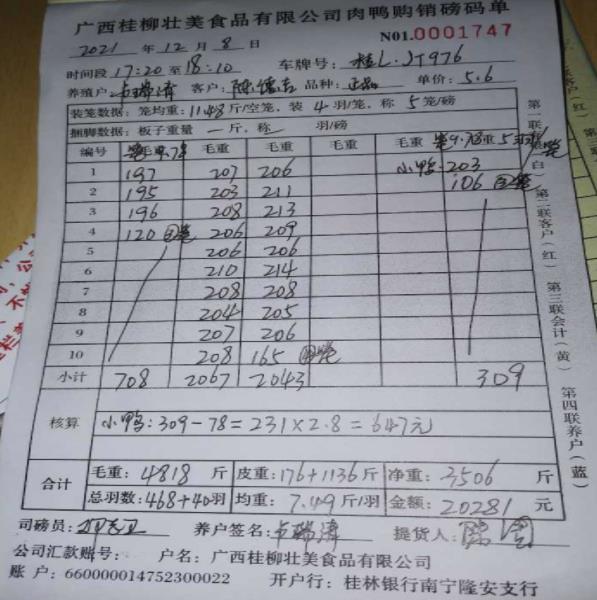 广西桂柳壮美食品有限公司肉鸭购销磅码单
2021 年 12 月 8 日 N01.0001747
时间段 17:20 至 18:10 车牌号: 桂L·J1976
养殖户: 客户: 品种: 正品 单价: 5.6
装笼数据: 笼均重: 11.48 斤/空笼, 装 4 羽/笼, 称 5 笼/磅
捆脚数据: 板子重量 一 斤, 称 羽/磅
编号 毛重 毛重 毛重 毛重 毛重
1 197 207 206 小鸭: 203
2 195 203 211 106
3 196 208 213
4 120 206 209
5 206 206
6 210 214
7 208 208
8 204 205
9 207 206
10 208 165
小计 708 2067 2043 309
核算 小鸭: 309-78=231×2.8=647元
合计 毛重: 4818 斤 皮重: 176+1136 斤 净重: 3506 斤
总羽数: 468+40 羽 均重: 7.49 斤/羽 金额: 20281 元
司磅员: 养户签名: 提货人:
公司汇款账号: 户名: 广西桂柳壮美食品有限公司
账 户: 660000014752300022 开户行: 桂林银行南宁隆安支行
第一联 (白) 第二联客户 (红) 第三联会计 (黄) 第四联养户 (蓝)